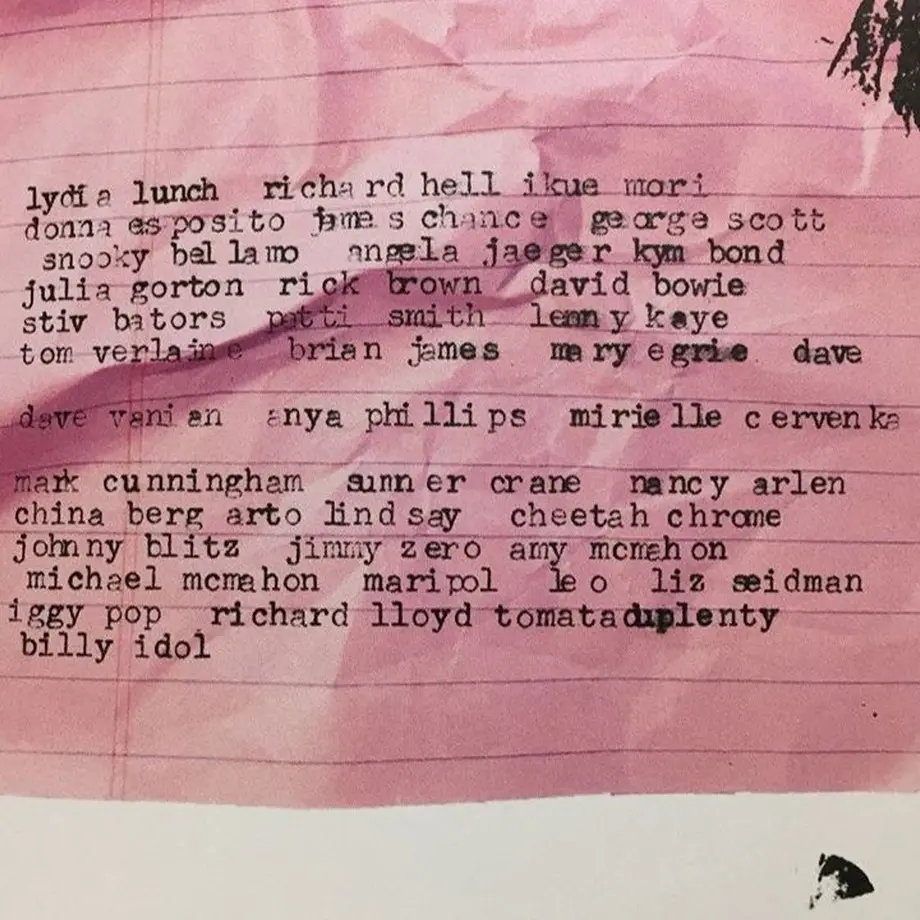 lydia lunch richard hell ikue mori
donna esposito james chance george scott
snooky bellamo angela jaeger kym bond
julia gorton rick brown david bowie
stiv bators patti smith lenny kaye
tom verlaine brian james mary egrie dave
dave vanian anya phillips mirielle cervenka
mark cunningham sumner crane nancy arlen
china berg arto lindsay cheetah chrome
johnny blitz jimmy zero amy mcmahon
michael mcmahon maripol leo liz seidman
iggy pop richard lloyd tomataduplenty
billy idol